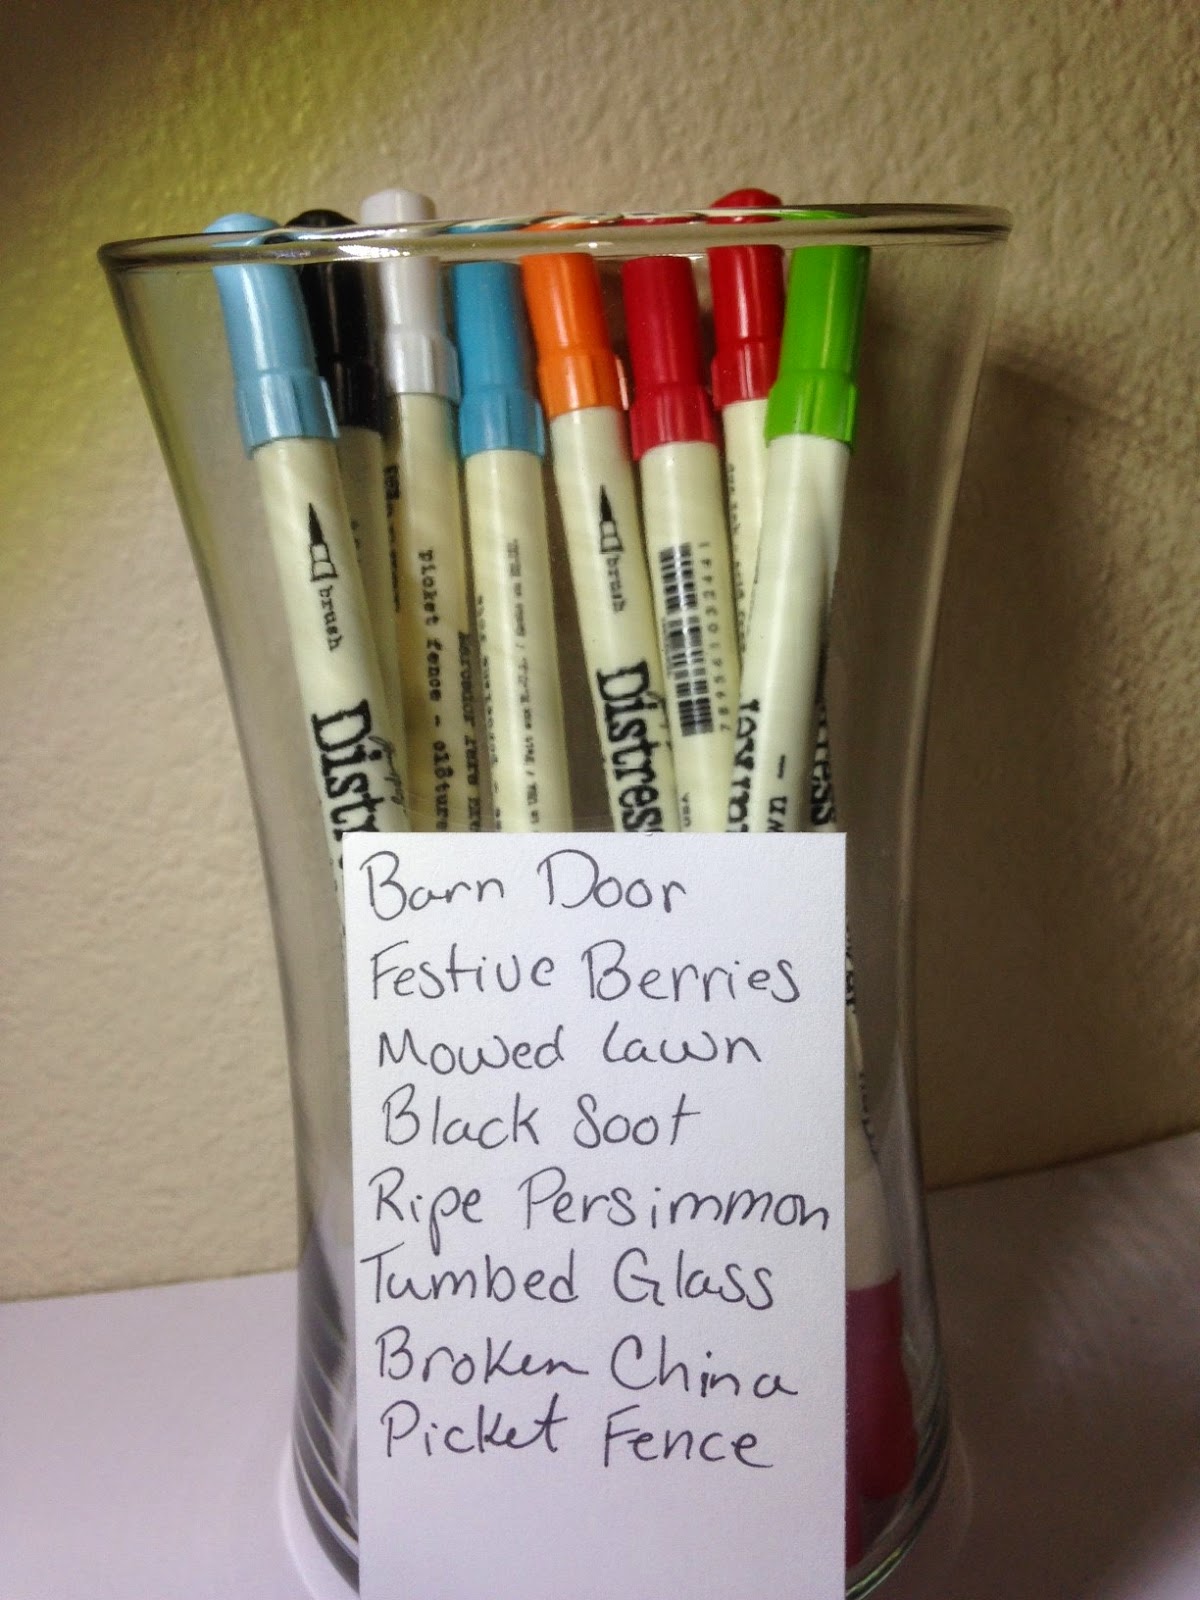 brush
Distr
Picket fence -
brush
Distress
789541032441
wn -
Barn Door
Festive Berries
Mowed Lawn
Black Soot
Ripe Persimmon
Tumbed Glass
Broken China
Picket Fence